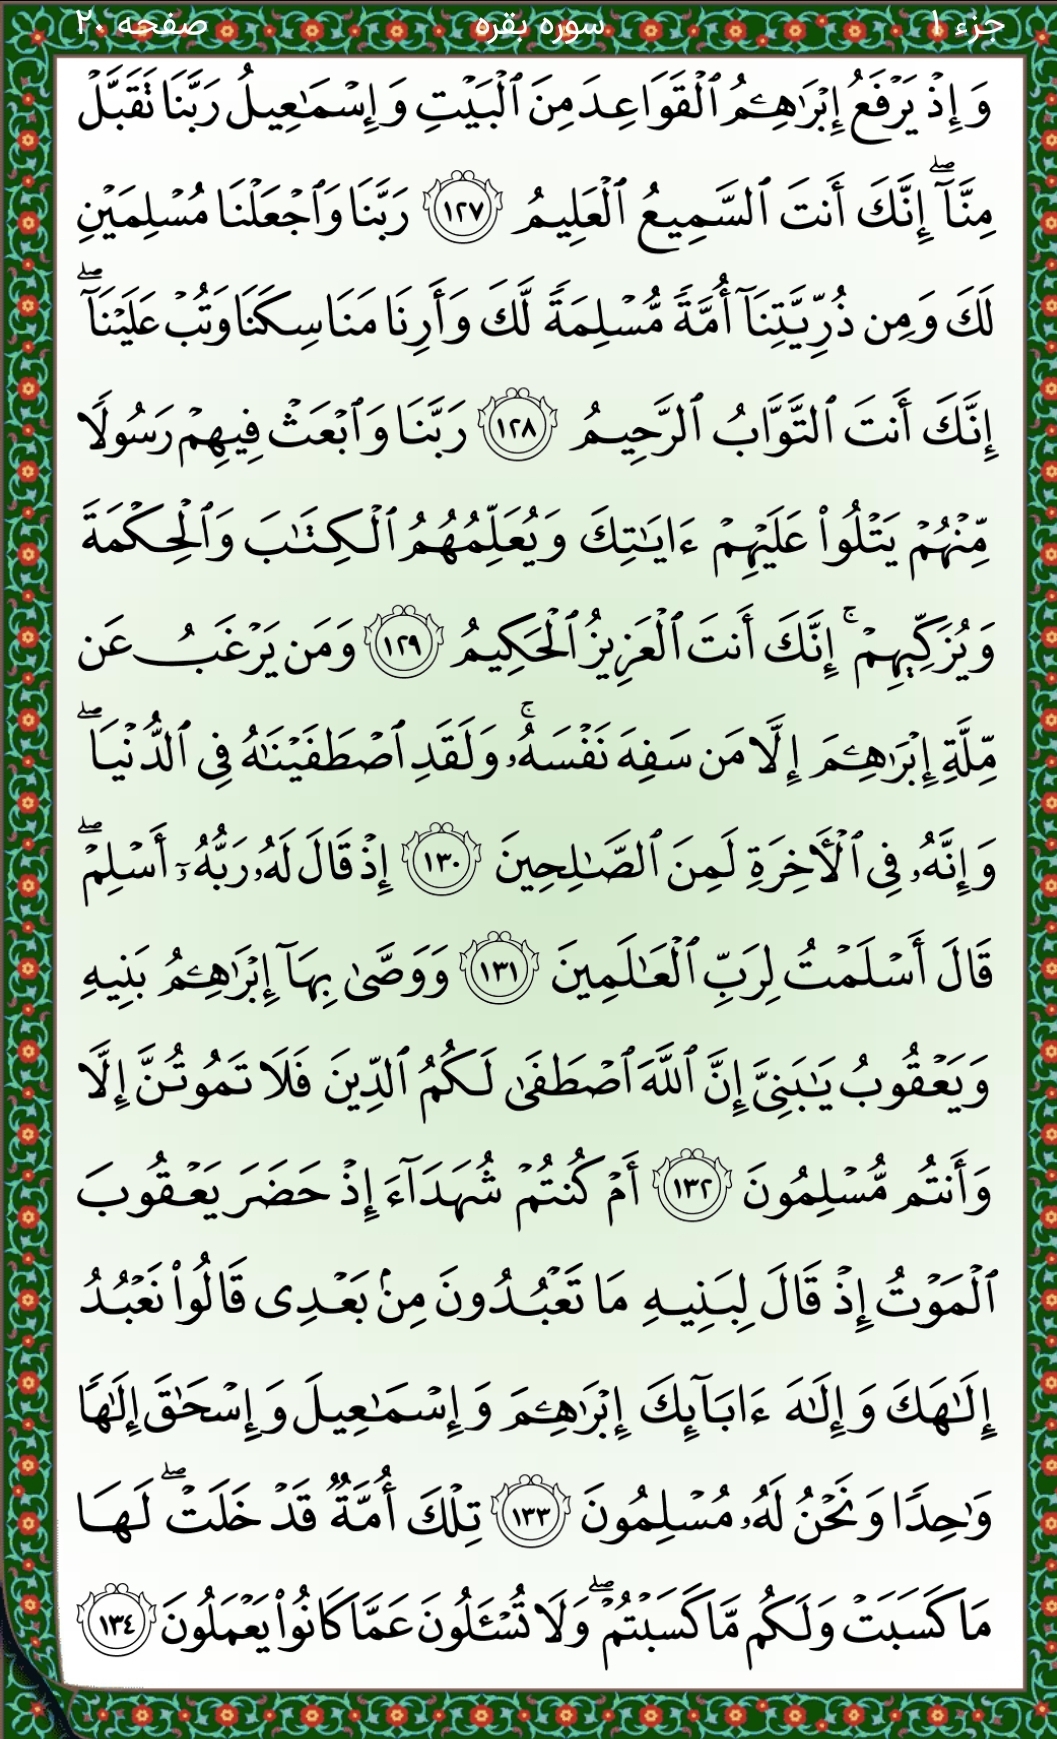 جزء ۱ سوره بقره صفحه ۲۰
وَإِذۡ يَرۡفَعُ إِبۡرَٰهِـۧمُ ٱلۡقَوَاعِدَ مِنَ ٱلۡبَيۡتِ وَإِسۡمَٰعِيلُ رَبَّنَا تَقَبَّلۡ
مِنَّآۖ إِنَّكَ أَنتَ ٱلسَّمِيعُ ٱلۡعَلِيمُ ١٢٧ رَبَّنَا وَٱجۡعَلۡنَا مُسۡلِمَيۡنِ
لَكَ وَمِن ذُرِّيَّتِنَآ أُمَّةٗ مُّسۡلِمَةٗ لَّكَ وَأَرِنَا مَنَاسِكَنَا وَتُبۡ عَلَيۡنَآۖ
إِنَّكَ أَنتَ ٱلتَّوَّابُ ٱلرَّحِيمُ ١٢٨ رَبَّنَا وَٱبۡعَثۡ فِيهِمۡ رَسُولٗا
مِّنۡهُمۡ يَتۡلُواْ عَلَيۡهِمۡ ءَايَٰتِكَ وَيُعَلِّمُهُمُ ٱلۡكِتَٰبَ وَٱلۡحِكۡمَةَ
وَيُزَكِّيهِمۡۚ إِنَّكَ أَنتَ ٱلۡعَزِيزُ ٱلۡحَكِيمُ ١٢٩ وَمَن يَرۡغَبُ عَن
مِّلَّةِ إِبۡرَٰهِـۧمَ إِلَّا مَن سَفِهَ نَفۡسَهُۥۚ وَلَقَدِ ٱصۡطَفَيۡنَٰهُ فِي ٱلدُّنۡيَاۖ
وَإِنَّهُۥ فِي ٱلۡأٓخِرَةِ لَمِنَ ٱلصَّٰلِحِينَ ١٣٠ إِذۡ قَالَ لَهُۥ رَبُّهُۥٓ أَسۡلِمۡۖ
قَالَ أَسۡلَمۡتُ لِرَبِّ ٱلۡعَٰلَمِينَ ١٣١ وَوَصَّىٰ بِهَآ إِبۡرَٰهِـۧمُ بَنِيهِ
وَيَعۡقُوبُ يَٰبَنِيَّ إِنَّ ٱللَّهَ ٱصۡطَفَىٰ لَكُمُ ٱلدِّينَ فَلَا تَمُوتُنَّ إِلَّا
وَأَنتُم مُّسۡلِمُونَ ١٣٢ أَمۡ كُنتُمۡ شُهَدَآءَ إِذۡ حَضَرَ يَعۡقُوبَ
ٱلۡمَوۡتُ إِذۡ قَالَ لِبَنِيهِ مَا تَعۡبُدُونَ مِنۢ بَعۡدِي قَالُواْ نَعۡبُدُ
إِلَٰهَكَ وَإِلَٰهَ ءَابَآئِكَ إِبۡرَٰهِـۧمَ وَإِسۡمَٰعِيلَ وَإِسۡحَٰقَ إِلَٰهٗا
وَٰحِدٗا وَنَحۡنُ لَهُۥ مُسۡلِمُونَ ١٣٣ تِلۡكَ أُمَّةٞ قَدۡ خَلَتۡۖ لَهَا
مَا كَسَبَتۡ وَلَكُم مَّا كَسَبۡتُمۡۖ وَلَا تُسۡـَٔلُونَ عَمَّا كَانُواْ يَعۡمَلُونَ ١٣٤